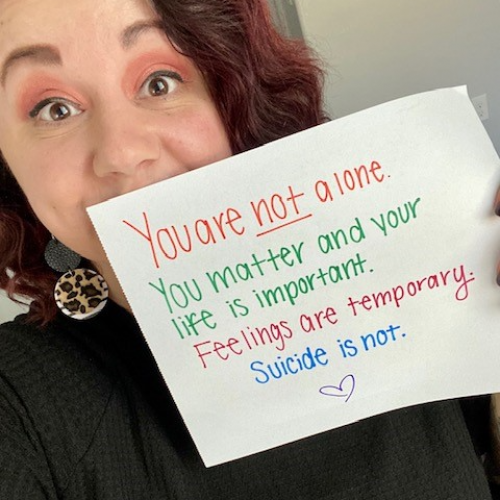 You are not alone.
You matter and your
life is important.
Feelings are temporary.
Suicide is not.